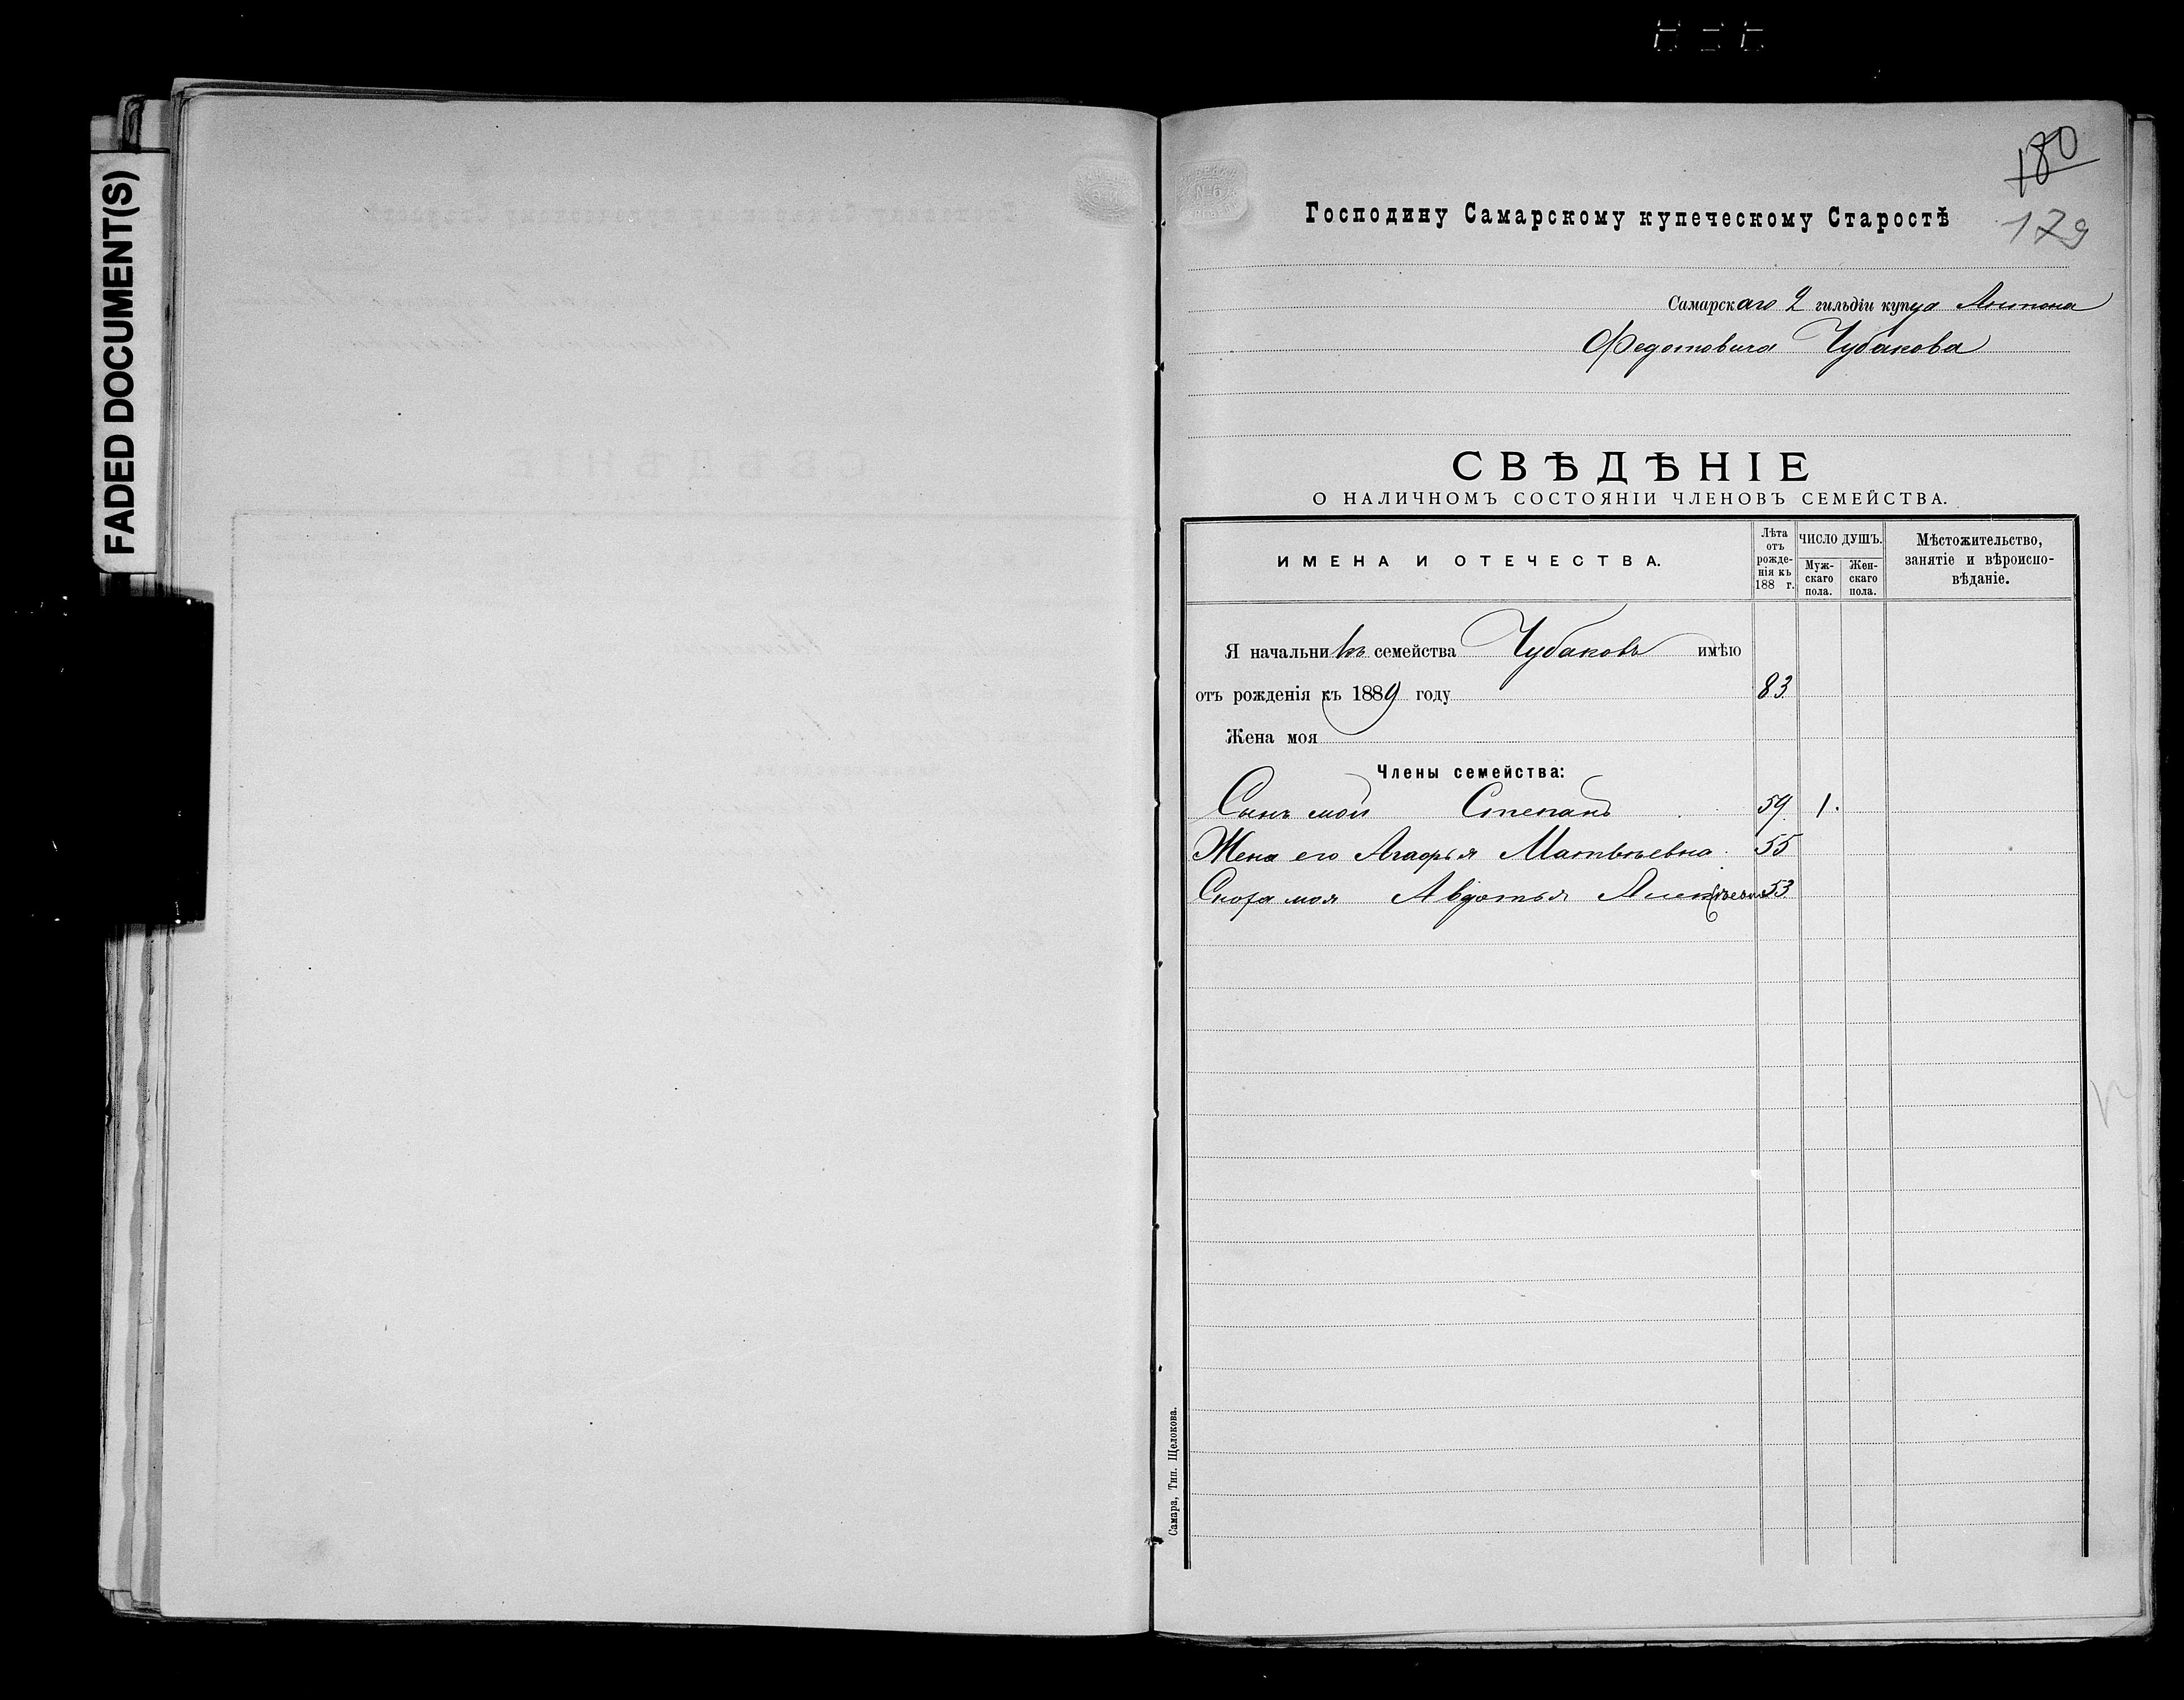 FADED DOCUMENT(S)
180
179
Господину Самарскому купеческому Старостѣ
Самарскаго 2 гильдіи купца Антона
Федотовича Чубакова
СВѢДѢНІЕ
О НАЛИЧНОМЪ СОСТОЯНІИ ЧЛЕНОВЪ СЕМЕЙСТВА.
ИМЕНА И ОТЕЧЕСТВА.
Лѣта отъ рожденія къ 188 г.
ЧИСЛО ДУШЪ.
Мужскаго пола.
Женскаго пола.
Мѣстожительство, занятіе и вѣроисповѣданіе.
Я начальникъ семейства Чубаковъ имѣю
отъ рожденія къ 1889 году 83
Жена моя
Члены семейства:
Сынъ мой Степанъ 59 1.
Жена его Агафья Матвѣевна 55
Сноха моя Авдотья 53
Самара, Тип. Щелокова.